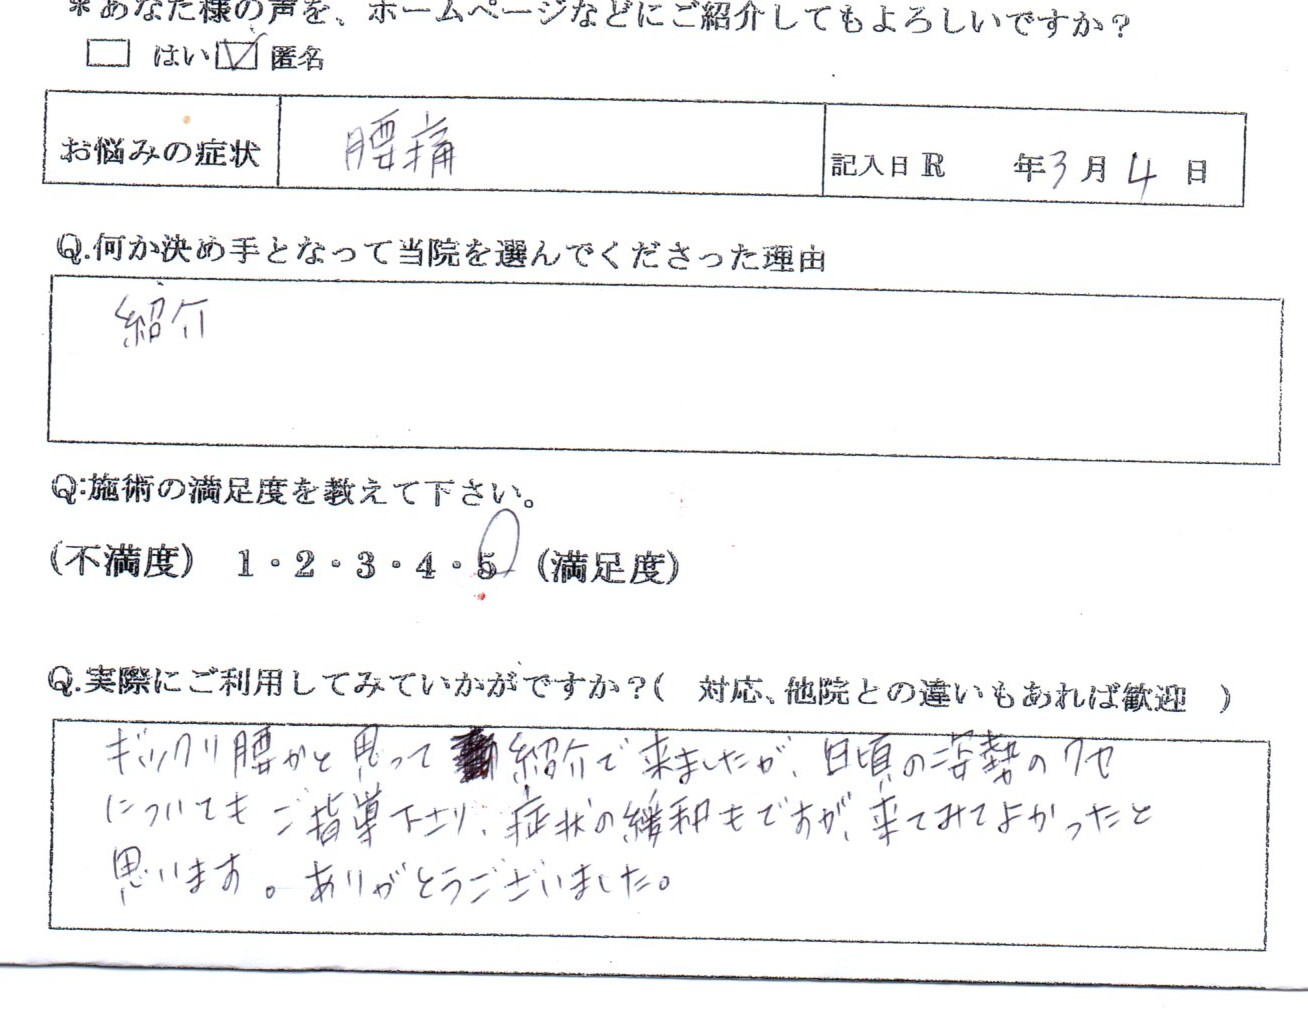 ＊あなた様の声を、ホームページなどにご紹介してもよろしいですか？
□ はい ☑ 匿名
お悩みの症状 腰痛 記入日 R 年 3 月 4 日
Q.何か決め手となって当院を選んでくださった理由
紹介
Q:施術の満足度を教えて下さい。
(不満度) 1・2・3・4・5 (満足度)
Q.実際にご利用してみていかがですか？( 対応、他院との違いもあれば歓迎 )
ギックリ腰かと思って 紹介で来ましたが、日頃の姿勢のクセ
についてもご指導下さり、症状の緩和もですが、来てみてよかったと
思います。ありがとうございました。